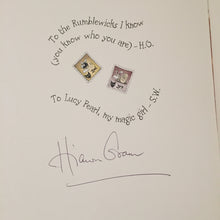 To the Rumblewicks I know
(you know who you are) – H.O.
To Lucy Pearl, my magic girl – S.W.
Hiawyn Oram